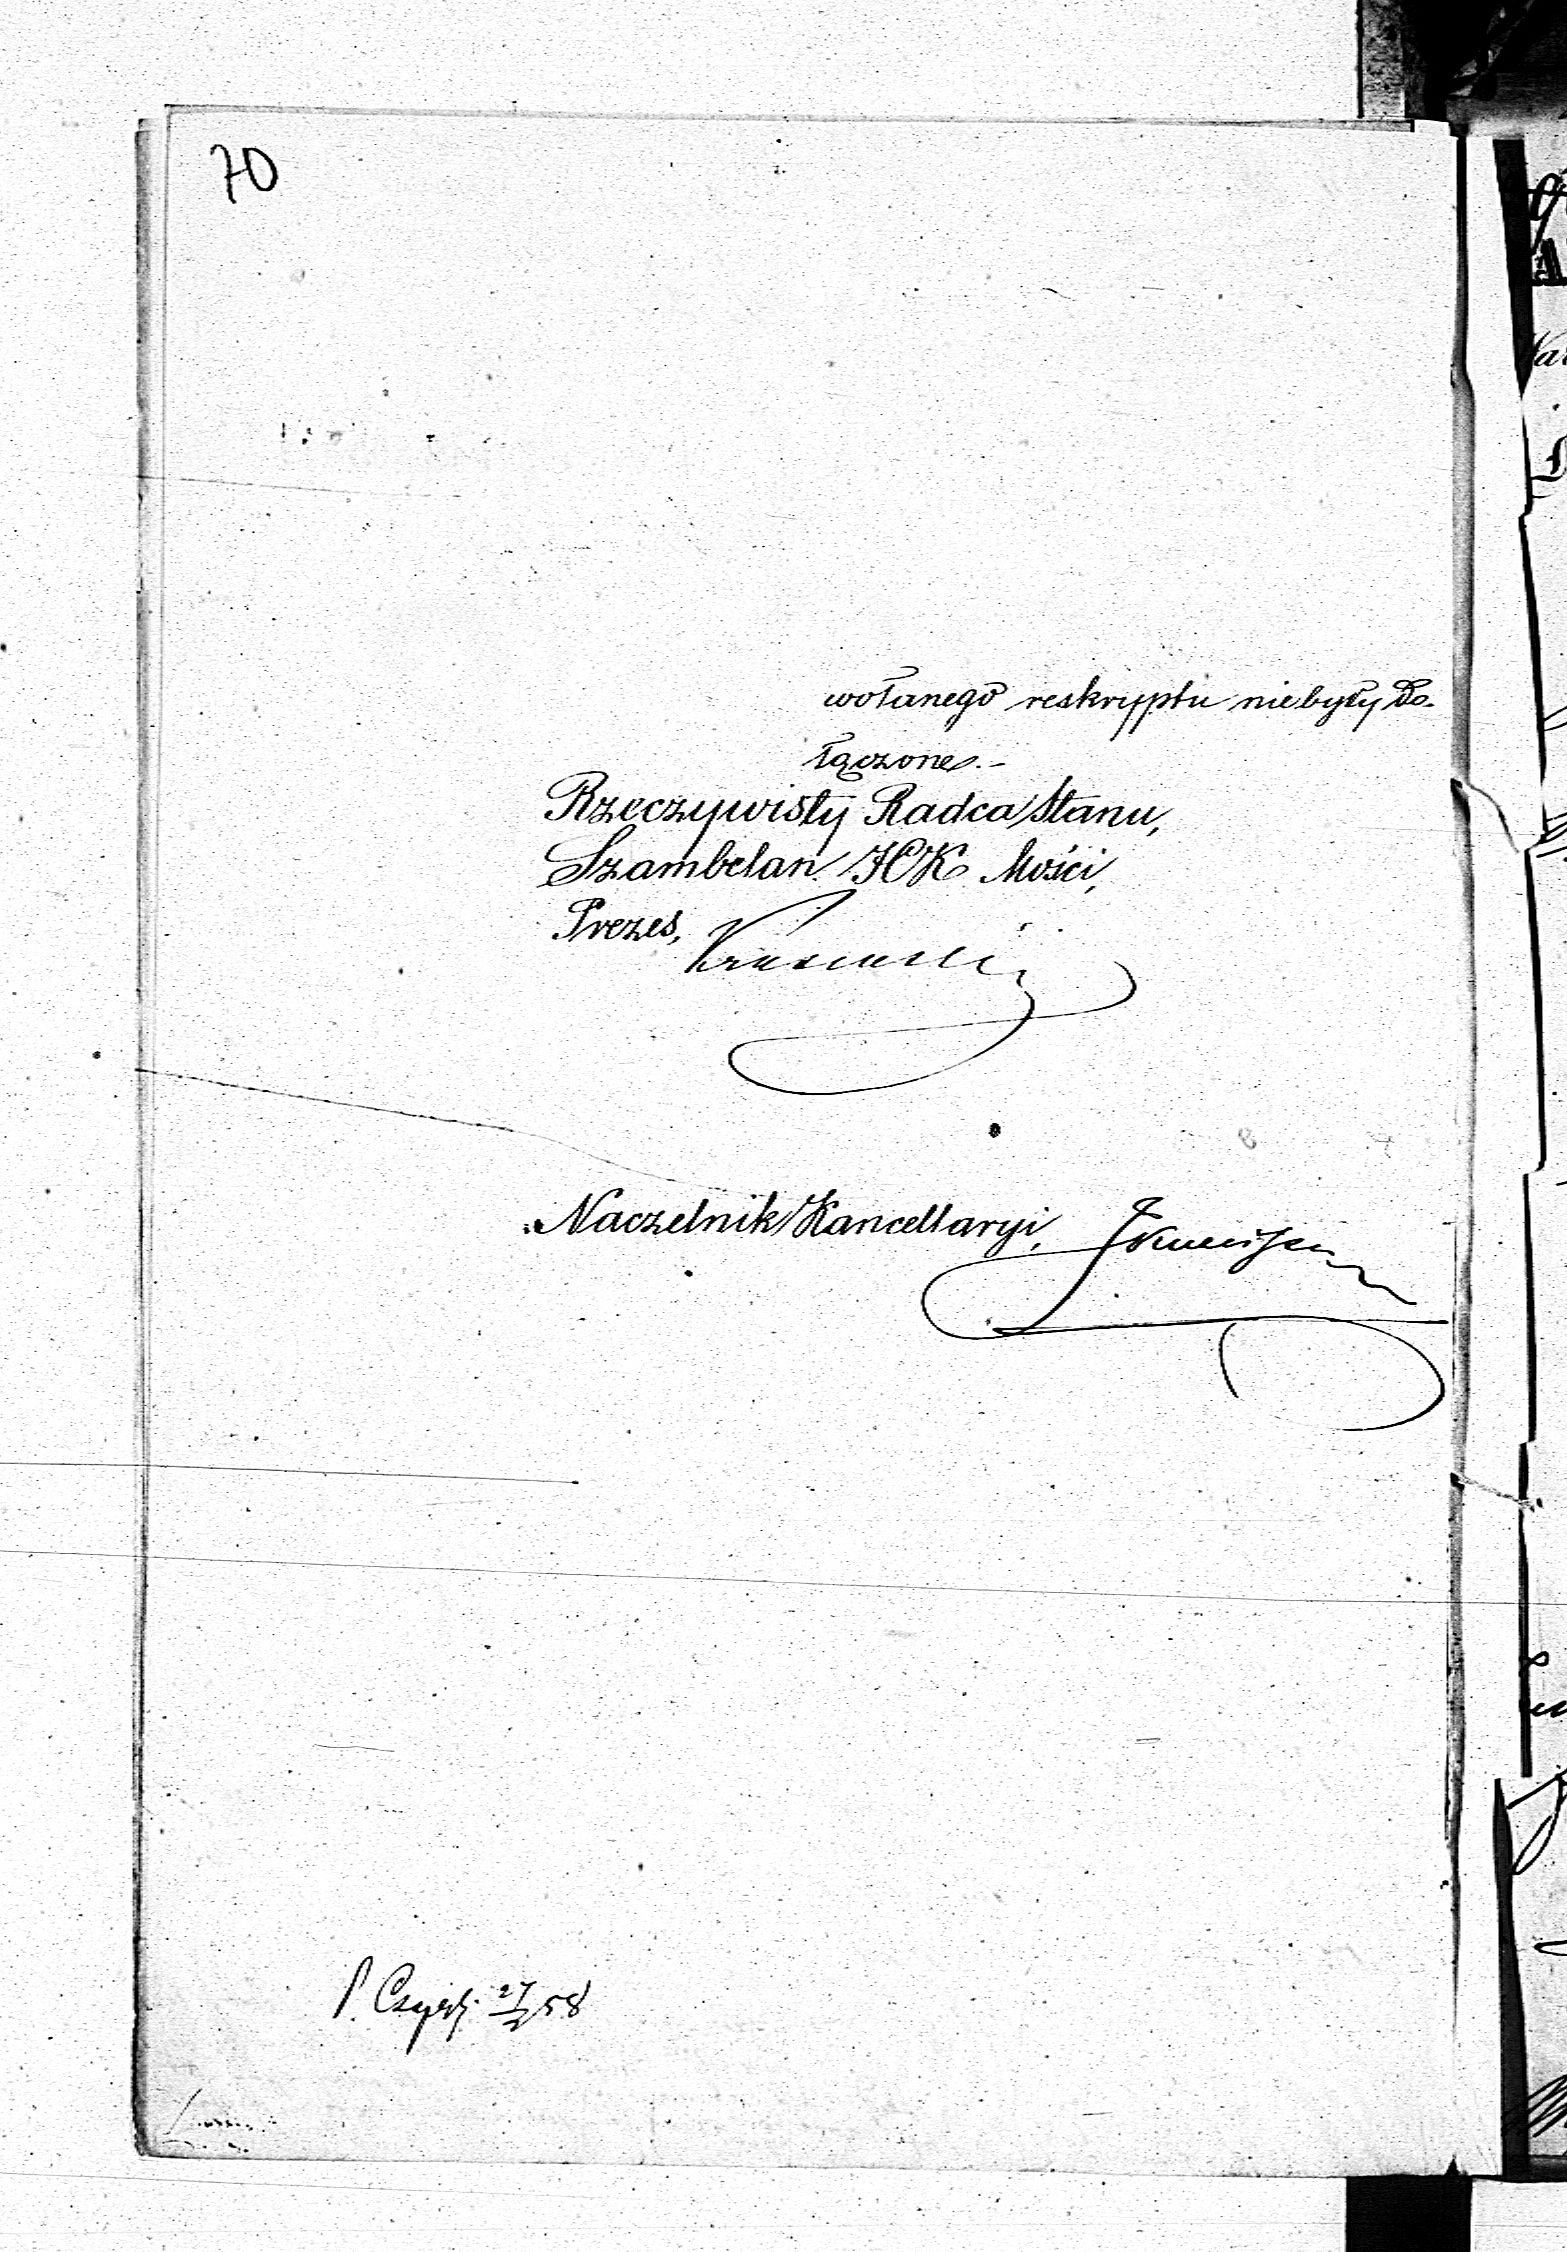 70
wołanego reskryptu niebyły do-
łączone.-
Rzeczywisty Radca Stanu,
Szambelan JCK Mości,
Prezes,
Naczelnik Kancellaryi,
P. 27/2 58